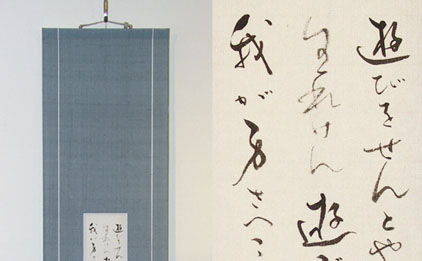 遊びをせんとや
生れけん遊び
我が身さへこ